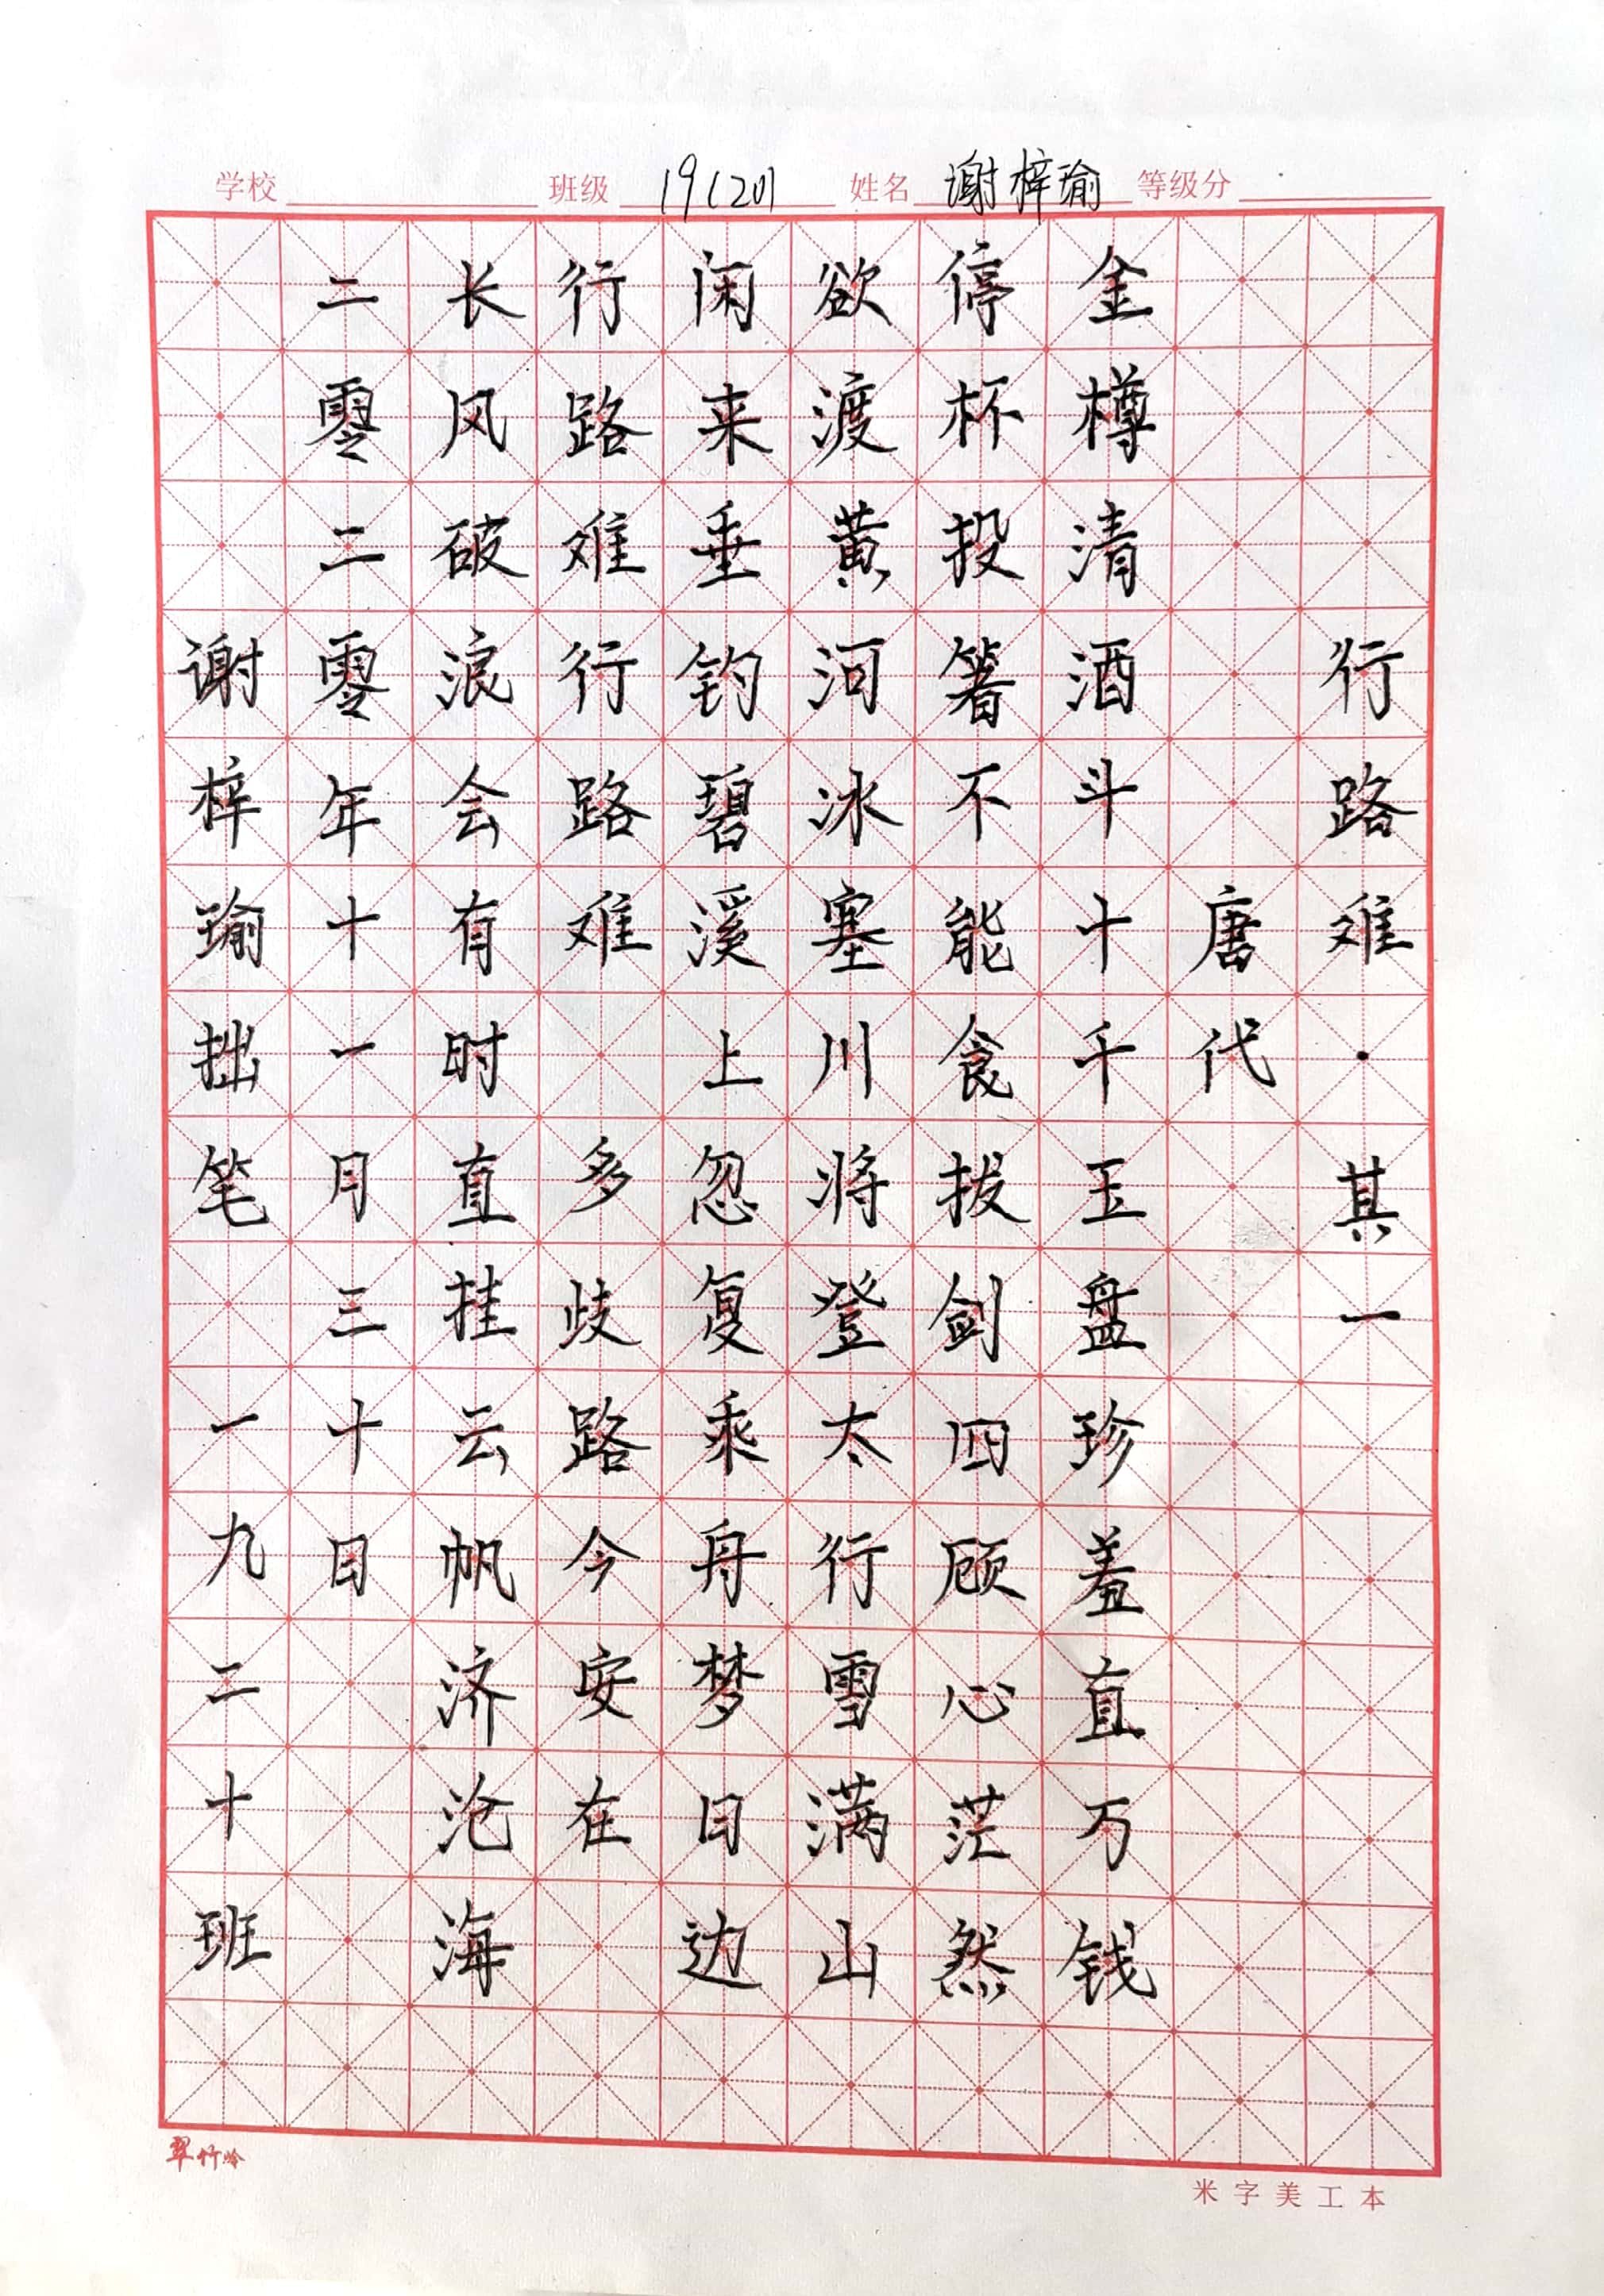 学校 班级 19(20) 姓名 谢梓瑜 等级分
行路难·其一
唐代
金樽清酒斗十千玉盘珍羞直万钱
停杯投箸不能食拔剑四顾心茫然
欲渡黄河冰塞川将登太行雪满山
闲来垂钓碧溪上忽复乘舟梦日边
行路难行路难多歧路今安在
长风破浪会有时直挂云帆济沧海
二零二零年十一月三十日
谢梓瑜拙笔一九二十班
翠竹岭
米字美工本